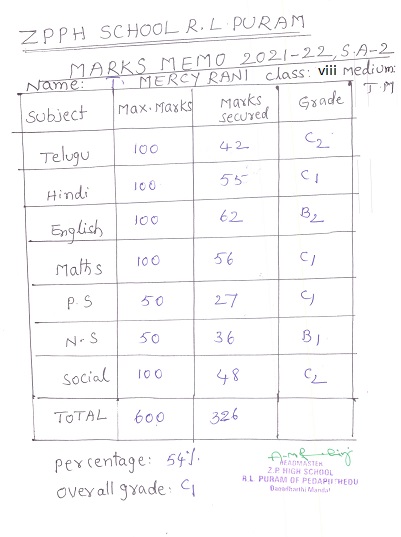 ZPPH SCHOOL R.L.PURAM
MARKS MEMO 2021-22, S.A-2
Name: T. MERCY RANI class: viii Medium: T.M
Subject Max.Marks Marks secured Grade
Telugu 100 42 C2
Hindi 100 55 C1
English 100 62 B2
Maths 100 56 C1
P.S 50 27 C1
N.S 50 36 B1
Social 100 48 C2
TOTAL 600 326
percentage: 54%.
overall grade: C1
HEADMASTER
Z.P HIGH SCHOOL
R.L PURAM OF PEDAPUTHEDU
Mandal